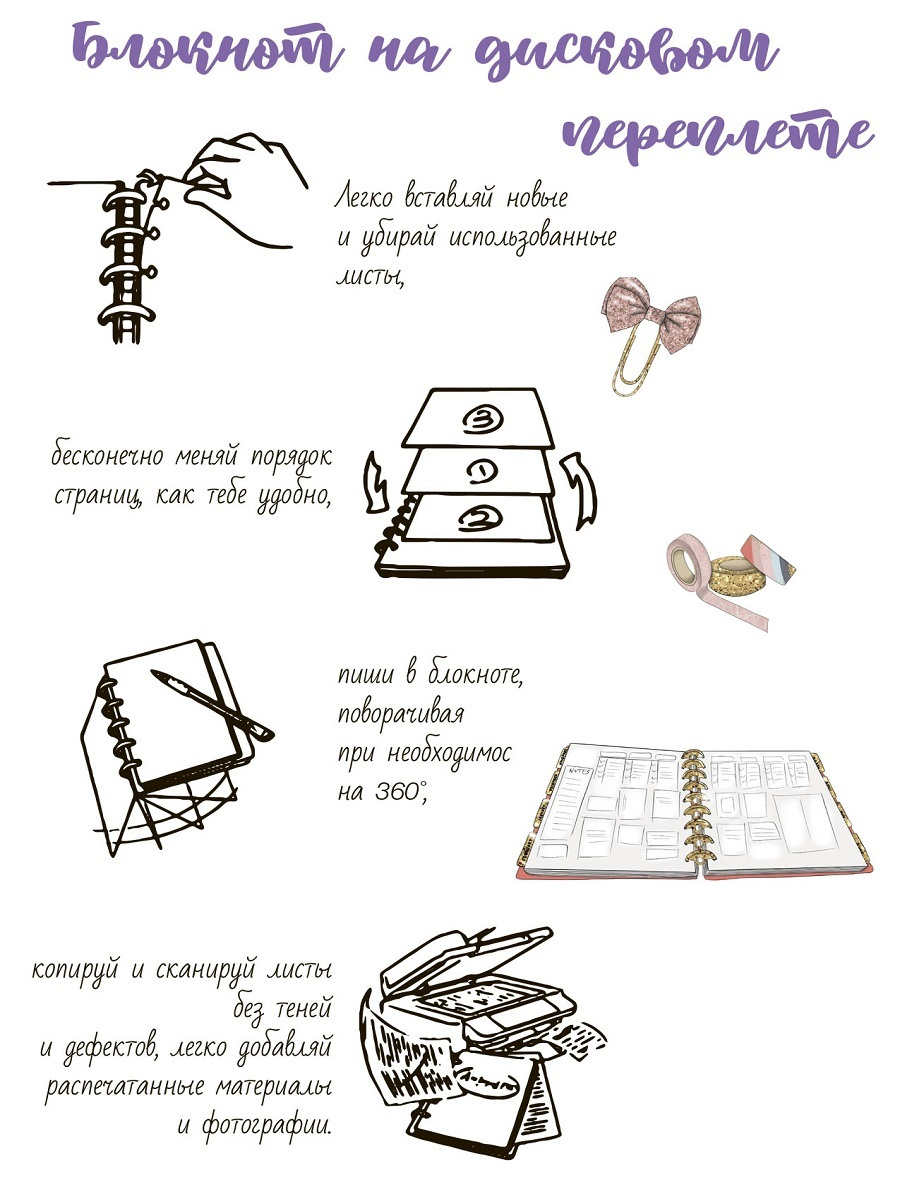 Блокнот на дисковом
переплете
Легко вставляй новые
и убирай использованные
листы,
3
бесконечно меняй порядок
страниц, как тебе удобно,
1
2
пиши в блокноте,
поворачивая
при необходимос
на 360°,
NOTES
копируй и сканируй листы
без теней
и дефектов, легко добавляй
распечатанные материалы
и фотографии.